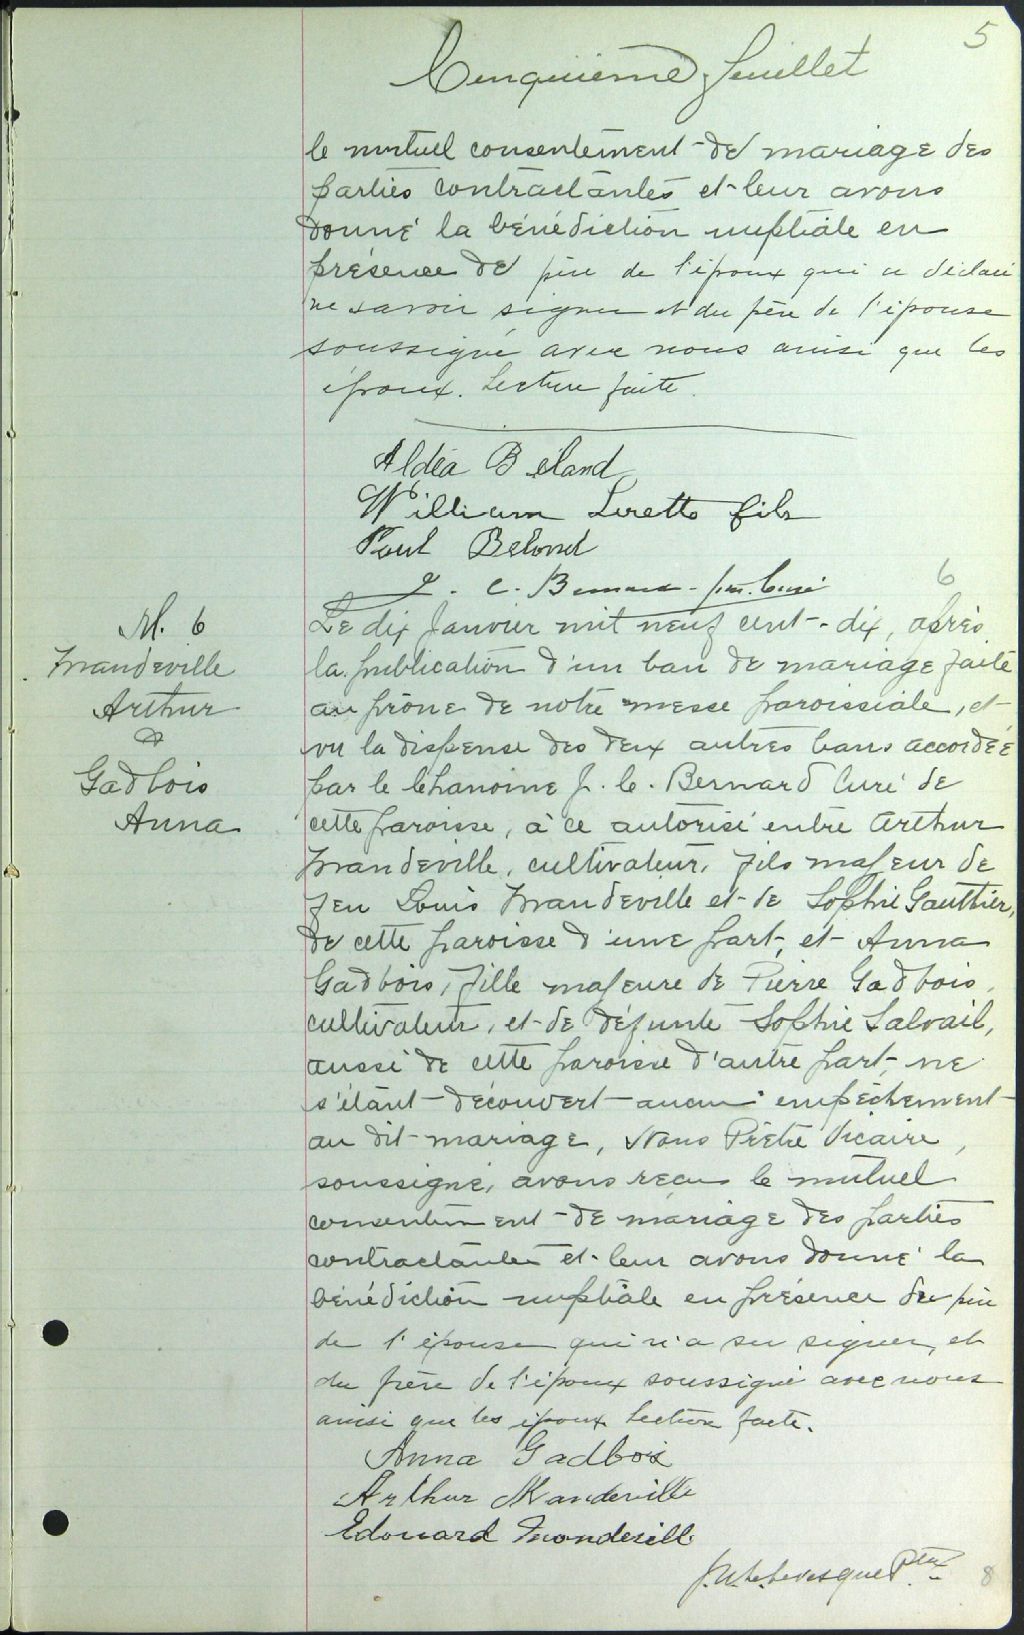 5
Cinquième feuillet
le mutuel consentement de mariage des
parties contractantes et leur avons
donné la bénédiction nuptiale en
présence de père de l'époux qui a déclaré
ne savoir signer et du père de l'épouse
soussigné avec nous ainsi que les
époux. Lecture faite.
Aldéa Beland
William Lirette fils
Paul Beland
J. C. Bernard - ptre. Curé
6
M. 6
Mandeville
Arthur
&
Gadbois
Anna
Le dix Janvier mil neuf cent-dix, après
la publication d'un ban de mariage faite
au prône de notre messe paroissiale, et
vu la dispense des deux autres bans accordée
par le Chanoine J. C. Bernard Curé de
cette paroisse, à ce autorisé entre Arthur
Mandeville, cultivateur, fils majeur de
feu Louis Mandeville et de Sophie Gauthier,
de cette paroisse d'une part, et Anna
Gadbois, fille majeure de Pierre Gadbois,
cultivateur, et de défunte Sophie Salvail,
aussi de cette paroisse d'autre part, ne
s'étant découvert aucun empêchement
au dit mariage, Nous Prêtre Vicaire,
soussigné, avons reçu le mutuel
consentement de mariage des parties
contractantes et leur avons donné la
bénédiction nuptiale en présence du père
de l'épouse qui n'a su signer, et
du frère de l'époux soussigné avec nous
ainsi que les époux Lecture faite.
Anna Gadbois
Arthur Mandeville
Edouard Mandevill
Levesque Ptre
8